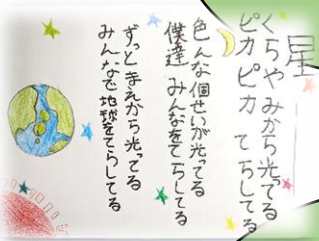 星
くらやみから光てる
ピカピカ てらしてる
色んな個せいが光ってる
僕達 みんなをてらしてる
ずっとまえから光ってる
みんなで地球をてらしてる